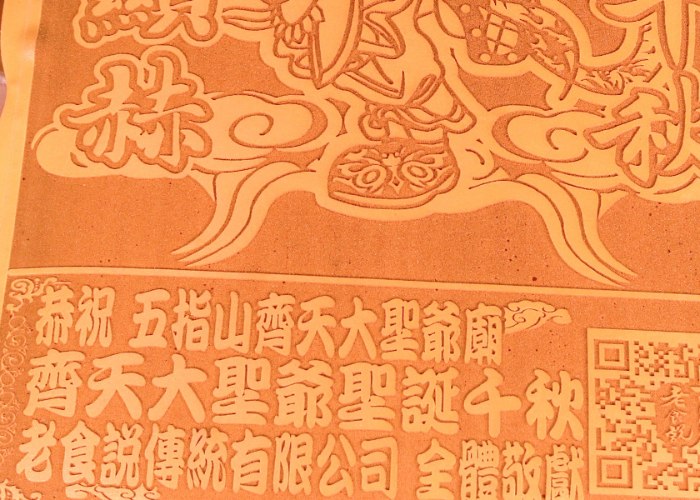 顯
赫
秋
恭祝 五指山齊天大聖爺廟
齊天大聖爺聖誕千秋
老食説傳統有限公司 全體敬獻
老食説